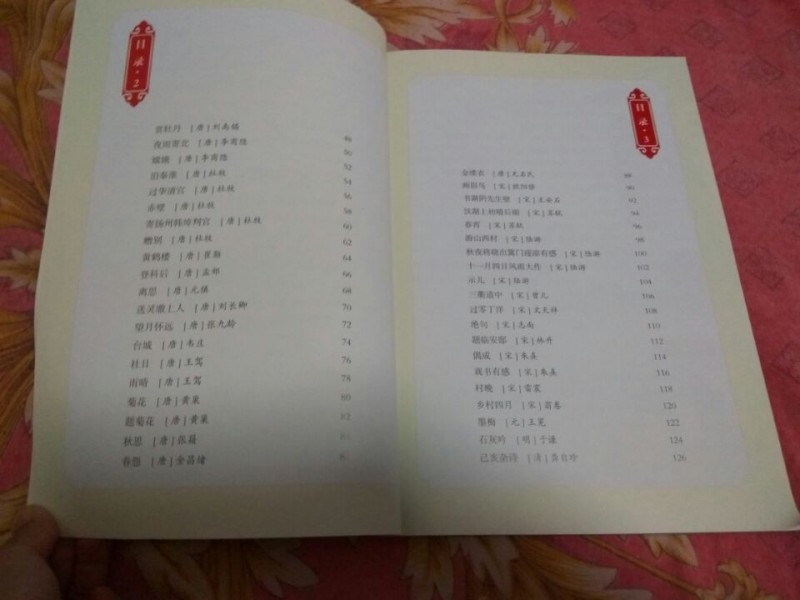 目录·2
赏牡丹 [唐]刘禹锡 48
夜雨寄北 [唐]李商隐 50
嫦娥 [唐]李商隐 52
泊秦淮 [唐]杜牧 54
过华清宫 [唐]杜牧 56
赤壁 [唐]杜牧 58
寄扬州韩绰判官 [唐]杜牧 60
赠别 [唐]杜牧 62
黄鹤楼 [唐]崔颢 64
登科后 [唐]孟郊 66
离思 [唐]元稹 68
送灵澈上人 [唐]刘长卿 70
望月怀远 [唐]张九龄 72
台城 [唐]韦庄 74
社日 [唐]王驾 76
雨晴 [唐]王驾 78
菊花 [唐]黄巢 80
题菊花 [唐]黄巢 82
秋思 [唐]张籍
春怨 [唐]金昌绪
目录·3
金缕衣 [唐]无名氏 88
画眉鸟 [宋]欧阳修 90
书湖阴先生壁 [宋]王安石 92
饮湖上初晴后雨 [宋]苏轼 94
春宵 [宋]苏轼 96
游山西村 [宋]陆游 98
秋夜将晓出篱门迎凉有感 [宋]陆游 100
十一月四日风雨大作 [宋]陆游 102
示儿 [宋]陆游 104
三衢道中 [宋]曾几 106
过零丁洋 [宋]文天祥 108
绝句 [宋]志南 110
题临安邸 [宋]林升 112
偶成 [宋]朱熹 114
观书有感 [宋]朱熹 116
村晚 [宋]雷震 118
乡村四月 [宋]翁卷 120
墨梅 [元]王冕 122
石灰吟 [明]于谦 124
己亥杂诗 [清]龚自珍 126